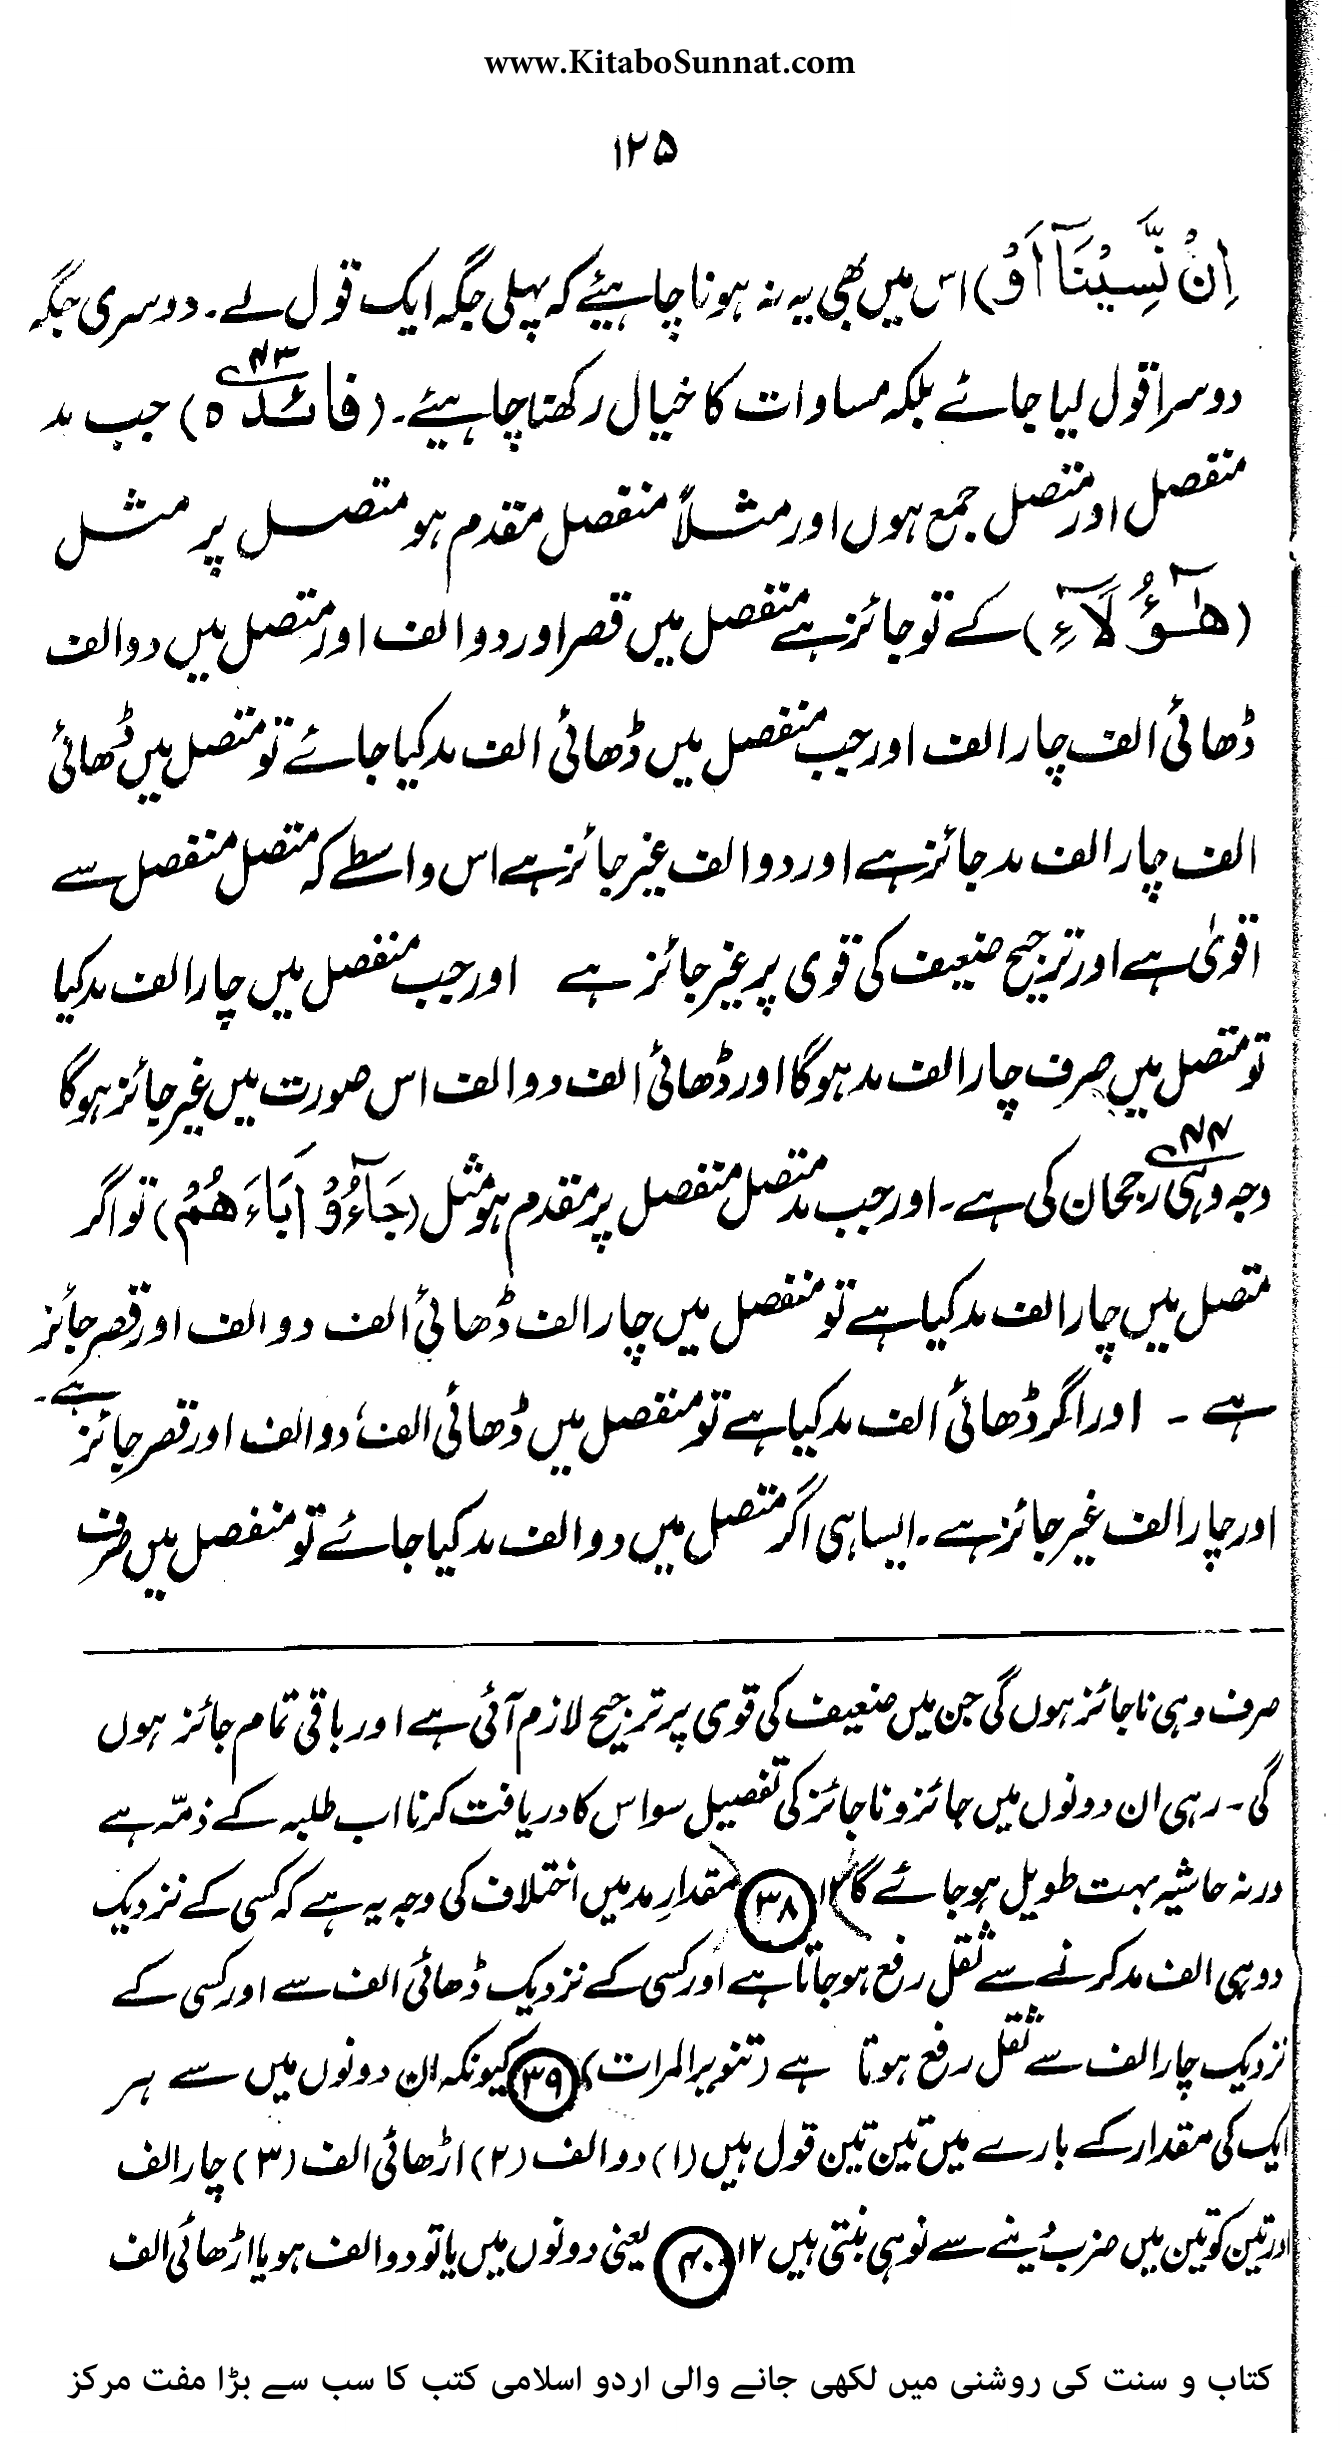 www.KitaboSunnat.com
۱۲۵
اِنْ نَّسِيْنَآ اَوْ) اس میں بھی یہ نہ ہونا چاہیئے کہ پہلی جگہ ایک قول لے۔ دوسری جگہ
دوسرا قول لیا جائے بلکہ مساوات کا خیال رکھنا چاہیئے۔ (فائدہ) ۴۳ جب مد
منفصل اور متصل جمع ہوں اور مثلاً منفصل مقدم ہو متصل پر مثل
(هٰٓؤُلَآءِ) کے تو جائز ہے منفصل میں قصر اور دو الف اور متصل میں دو الف
ڈھائی الف چار الف اور جب منفصل میں ڈھائی الف مد کیا جائے تو متصل میں ڈھائی
الف چار الف مد جائز ہے اور دو الف غیر جائز ہے اس واسطے کہ متصل منفصل سے
اقویٰ ہے اور ترجیح ضعیف کی قوی پر غیر جائز ہے اور جب منفصل میں چار الف مد کیا
تو متصل میں صرف چار الف مد ہوگا اور ڈھائی الف دو الف اس صورت میں غیر جائز ہوگا
وجہ وہی ۴۴ رجحان کی ہے۔ اور جب مد متصل منفصل پر مقدم ہو مثل (جَآءُوْ اٰبَاءَهُمْ) تو اگر
متصل میں چار الف مد کیا ہے تو منفصل میں چار الف ڈھائی الف دو الف اور قصر جائز
ہے ۔ اور اگر ڈھائی الف مد کیا ہے تو منفصل میں ڈھائی الف، دو الف اور قصر جائز ہے۔
اور چار الف غیر جائز ہے۔ ایسا ہی اگر متصل میں دو الف مد کیا جائے تو منفصل میں صرف
صرف وہی ناجائز ہوں گی جن میں ضعیف کی قوی پر ترجیح لازم آئی ہے اور باقی تمام جائز ہوں
گی۔ رہی ان دونوں میں جائز و ناجائز کی تفصیل سو اس کا دریافت کرنا اب طلبہ کے ذمّہ ہے
ورنہ حاشیہ بہت طویل ہو جائے گا ۱۲ (۳۸) مقدارِ مد میں اختلاف کی وجہ یہ ہے کہ کسی کے نزدیک
دو ہی الف مد کرنے سے ثقل رفع ہو جاتا ہے اور کسی کے نزدیک ڈھائی الف سے اور کسی کے
نزدیک چار الف سے ثقل رفع ہوتا ہے (تنویر المرات) (۳۹) کیونکہ ان دونوں میں سے ہر
ایک کی مقدار کے بارے میں تین تین قول ہیں (۱) دو الف (۲) اڑھائی الف (۳) چار الف
اور تین کو تین میں ضرب دینے سے نو ہی بنتی ہیں ۱۲ (۴۰) یعنی دونوں میں یا تو دو الف ہو یا اڑھائی الف
کتاب و سنت کی روشنی میں لکھی جانے والی اردو اسلامی کتب کا سب سے بڑا مفت مرکز